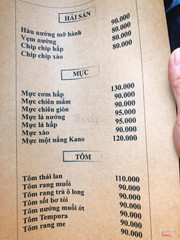 HẢI SẢN
Hàu nướng mỡ hành 90.000
Vẹm nướng 80.000
Chip chíp hấp 80.000
Chip chíp xào 80.000
MỰC
Mực cơm hấp 130.000
Mực chiên mắm 90.000
Mực chiên giòn 90.000
Mực lá nướng 95.000
Mực lá hấp 95.000
Mực xào 90.000
Mực một nắng Kano 120.000
TÔM
Tôm thái lan 110.000
Tôm rang muối 90.000
Tôm rang trà ô long 90.000
Tôm sốt bơ tỏi 90.000
Tôm nướng muối ớt 90.000
Tôm Tempura 90.000
Tôm rang me 90.000